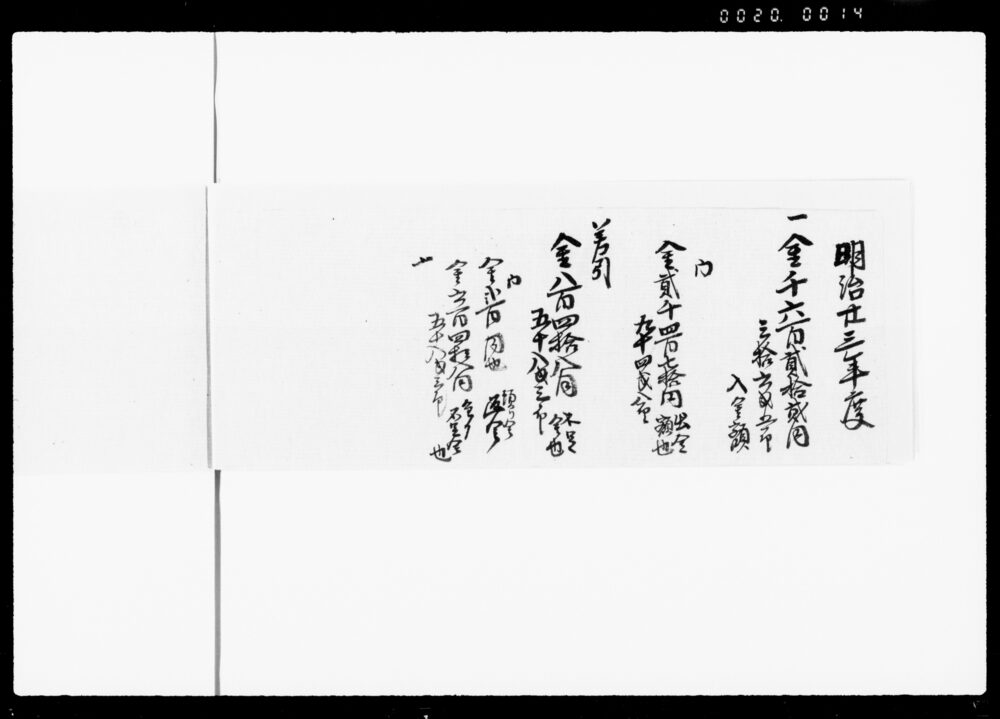 0020. 0014
明治廿三年度
一金千六百貳拾貳円
三拾六戋五厘
入金額
内
金貳千四百七拾円
九十四戋八厘
出金
額也
差引
金八百四拾八円
五十八戋三厘
不足
金也
内
金弐百円也
預り金
返金
金六百四拾八円
五十八戋三厘
全ク
不足金
也